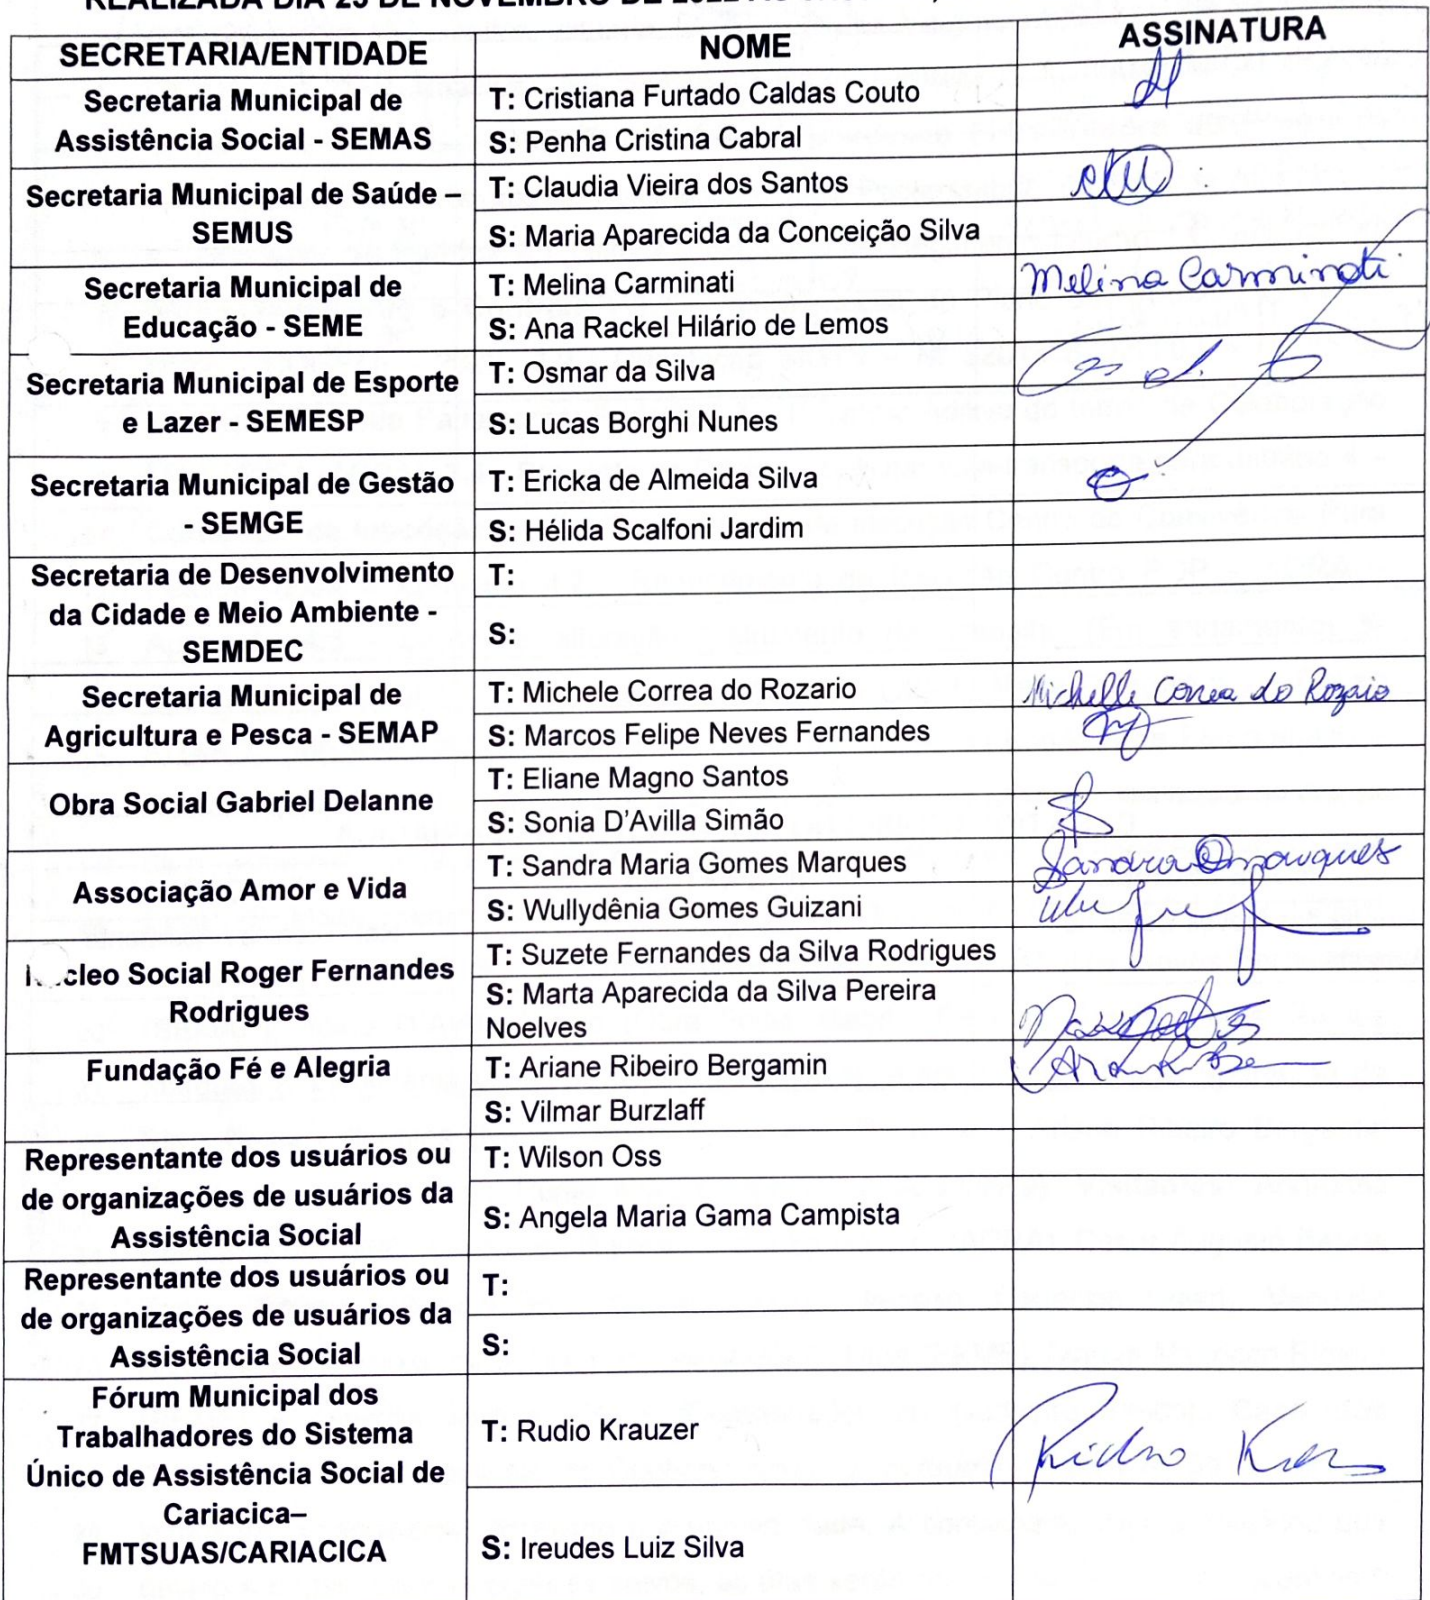 REALIZADA DIA 23 DE NOVEMBRO DE 2022
SECRETARIA/ENTIDADE NOME ASSINATURA
Secretaria Municipal de
Assistência Social - SEMAS
T: Cristiana Furtado Caldas Couto
S: Penha Cristina Cabral
Secretaria Municipal de Saúde –
SEMUS
T: Claudia Vieira dos Santos
S: Maria Aparecida da Conceição Silva
Secretaria Municipal de
Educação - SEME
T: Melina Carminati Melina Carminati
S: Ana Rackel Hilário de Lemos
Secretaria Municipal de Esporte
e Lazer - SEMESP
T: Osmar da Silva
S: Lucas Borghi Nunes
Secretaria Municipal de Gestão
- SEMGE
T: Ericka de Almeida Silva
S: Hélida Scalfoni Jardim
Secretaria de Desenvolvimento
da Cidade e Meio Ambiente -
SEMDEC
T:
S:
Secretaria Municipal de
Agricultura e Pesca - SEMAP
T: Michele Correa do Rozario Michelle Correa do Rozario
S: Marcos Felipe Neves Fernandes
Obra Social Gabriel Delanne
T: Eliane Magno Santos
S: Sonia D’Avilla Simão
Associação Amor e Vida
T: Sandra Maria Gomes Marques Sandra Marques
S: Wullydênia Gomes Guizani
Núcleo Social Roger Fernandes
Rodrigues
T: Suzete Fernandes da Silva Rodrigues
S: Marta Aparecida da Silva Pereira
Noelves
Fundação Fé e Alegria
T: Ariane Ribeiro Bergamin
S: Vilmar Burzlaff
Representante dos usuários ou
de organizações de usuários da
Assistência Social
T: Wilson Oss
S: Angela Maria Gama Campista
Representante dos usuários ou
de organizações de usuários da
Assistência Social
T:
S:
Fórum Municipal dos
Trabalhadores do Sistema
Único de Assistência Social de
Cariacica–
FMTSUAS/CARIACICA
T: Rudio Krauzer Rudio
S: Ireudes Luiz Silva